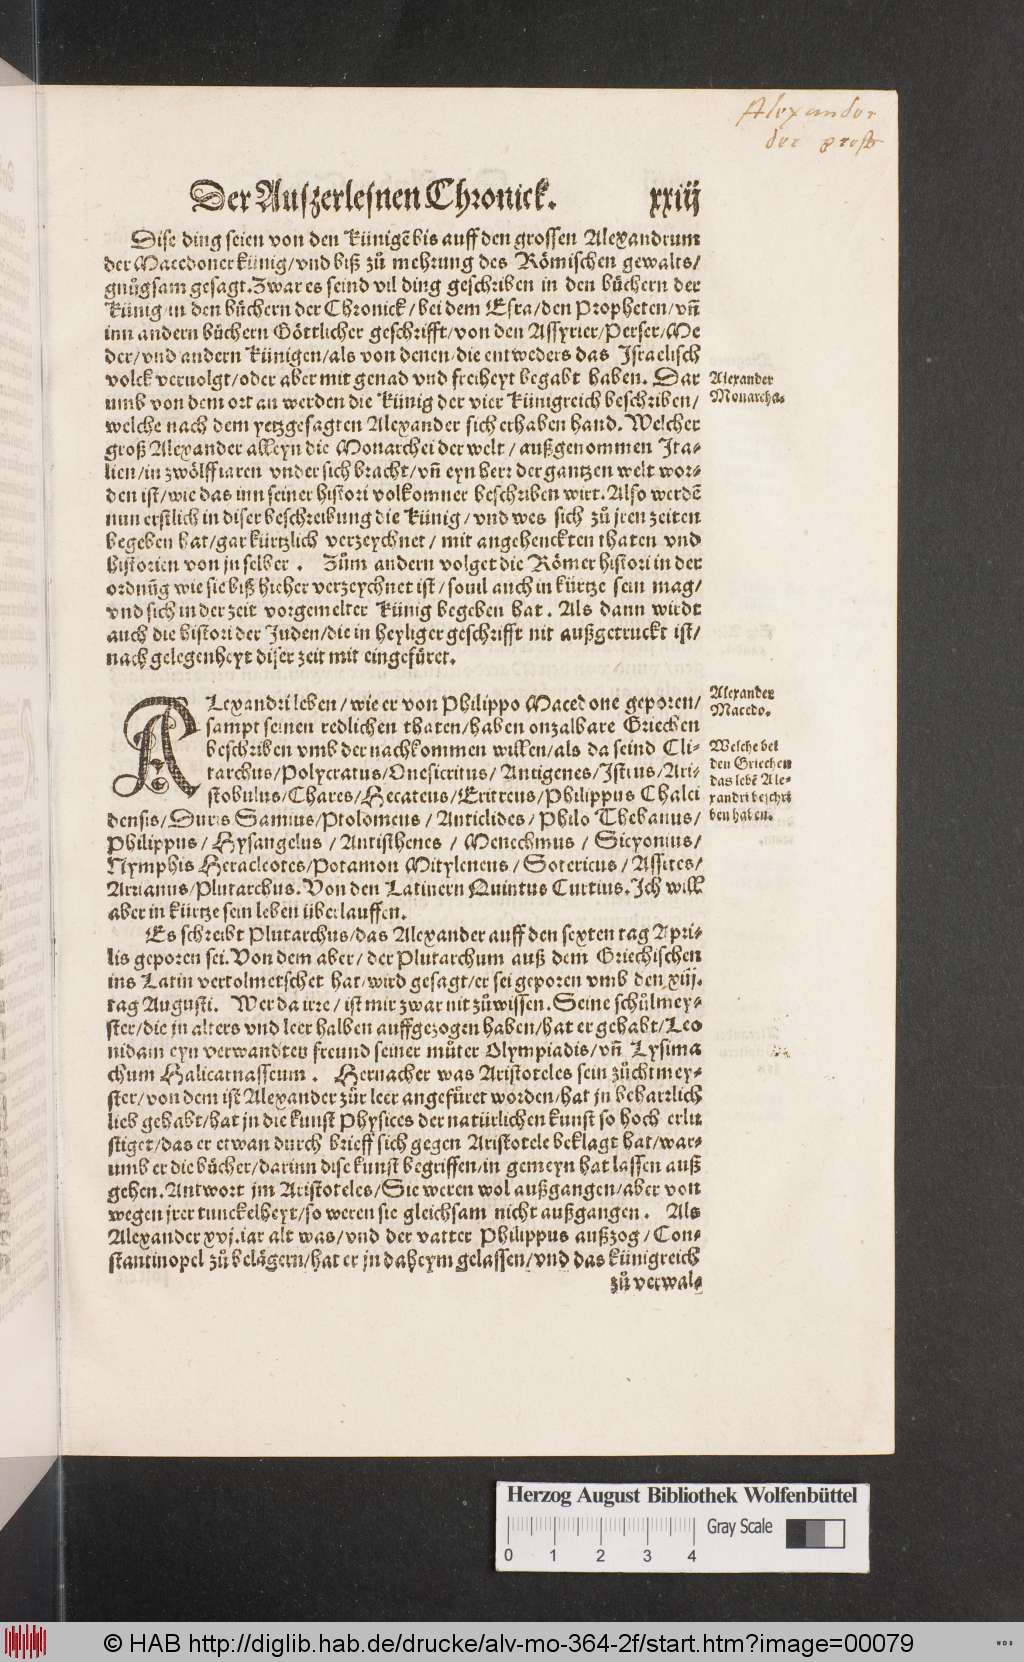 Alexander
der groſs
Der Auſzerleſnen Chronick. xxiij
Diſe ding ſeien von den künigẽ bis auff den groſſen Alexandrum
der Macedoner künig/vnd biß zů mehrung des Römiſchen gewalts/
gnůgſam geſagt. Zwar es ſeind vil ding geſchriben in den bůchern der
künig/in den bůchern der Chronick/bei dem Eſra/den Propheten/vñ
inn andern bůchern Göttlicher geſchrifft/von den Aſſyrier/Perſer/Me
der/vnd andern künigen/als von denen/die entweders das Iſraeliſch
volck veruolgt/oder aber mit genad vnd freiheyt begabt haben. Dar
umb von dem ort an werden die künig der vier künigreich beſchriben/
welche nach dem yetzgeſagten Alexander ſich erhaben hand. Welcher
groß Alexander alleyn die Monarchei der welt/außgenommen Ita-
lien/in zwölff iaren vnder ſich bracht/vñ eyn herr der gantzen welt wor-
den iſt/wie das inn ſeiner hiſtori volkomner beſchriben wirt. Alſo werdẽ
nun erſtlich in diſer beſchreibung die künig/vnd wes ſich zů jren zeiten
begeben hat/gar kürtzlich verzeychnet/mit angehenckten thaten vnd
hiſtorien von jn ſelber. Zům andern volget die Römer hiſtori in der
ordnũg wie ſie biß hieher verzeychnet iſt/ſouil auch in kürtze ſein mag/
vnd ſich in der zeit vorgemelter künig begeben hat. Als dann wirdt
auch die hiſtori der Juden/die in heyliger geſchrifft nit außgetruckt iſt/
nach gelegenheyt diſer zeit mit eingefüret.
Alexander
Monarcha.
ALexandri leben/wie er von Philippo Macedone geporen/
ſampt ſeinen redlichen thaten/haben onzalbare Griechen
beſchriben vmb der nachkommen willen/als da ſeind Cli-
tarchus/Polycratus/Oneſicritus/Antigenes/Iſtrus/Ari-
ſtobulus/Chares/Hecateus/Eritreus/Philippus Chalci
denſis/Duris Samius/Ptolomeus/Anticlides/Philo Thebanus/
Philippus/Hyſangelus/Antiſthenes/Menechmus/Sicyonius/
Nymphis Heracleotes/Potamon Mityleneus/Sotericus/Aſſites/
Arrianus/Plutarchus. Von den Latinern Quintus Curtius. Ich will
aber in kürtze ſein leben überlauffen.
Alexander
Macedo.
Welche bei
den Griechen
das lebẽ Ale-
xandri beſchri
ben haben.
Es ſchreibt Plutarchus/das Alexander auff den ſexten tag Apri-
lis geporen ſei. Von dem aber/der Plutarchum auß dem Griechiſchen
ins Latin vertolmetſchet hat/wird geſagt/er ſei geporen vmb den xiij.
tag Auguſti. Wer da irre/iſt mir zwar nit zůwiſſen. Seine ſchůlmey-
ſter/die jn alters vnd leer halben auffgezogen haben/hat er gehabt/Leo
nidam eyn verwandten freund ſeiner můter Olympiadis/vñ Lyſima
chum Halicarnaſſeum. Hernacher was Ariſtoteles ſein zůchtmey-
ſter/von dem iſt Alexander zůr leer angefüret worden/hat jn beharrlich
lieb gehabt/hat jn die kunſt Phyſices der natürlichen kunſt ſo hoch erlu
ſtiget/das er etwan durch brieff ſich gegen Ariſtotele beklagt hat/war-
umb er die bůcher/darinn diſe kunſt begriffen/in gemeyn hat laſſen auß
gehen. Antwort jm Ariſtoteles/Sie weren wol außgangen/aber von
wegen jrer tunckelheyt/ſo weren ſie gleichſam nicht außgangen. Als
Alexander xvj. iar alt was/vnd der vatter Philippus außzog/Con-
ſtantinopel zů belägern/hat er jn daheym gelaſſen/vnd das künigreich
zů verwal-
Herzog August Bibliothek Wolfenbüttel
Gray Scale
0 1 2 3 4
© HAB http://diglib.hab.de/drucke/alv-mo-364-2f/start.htm?image=00079